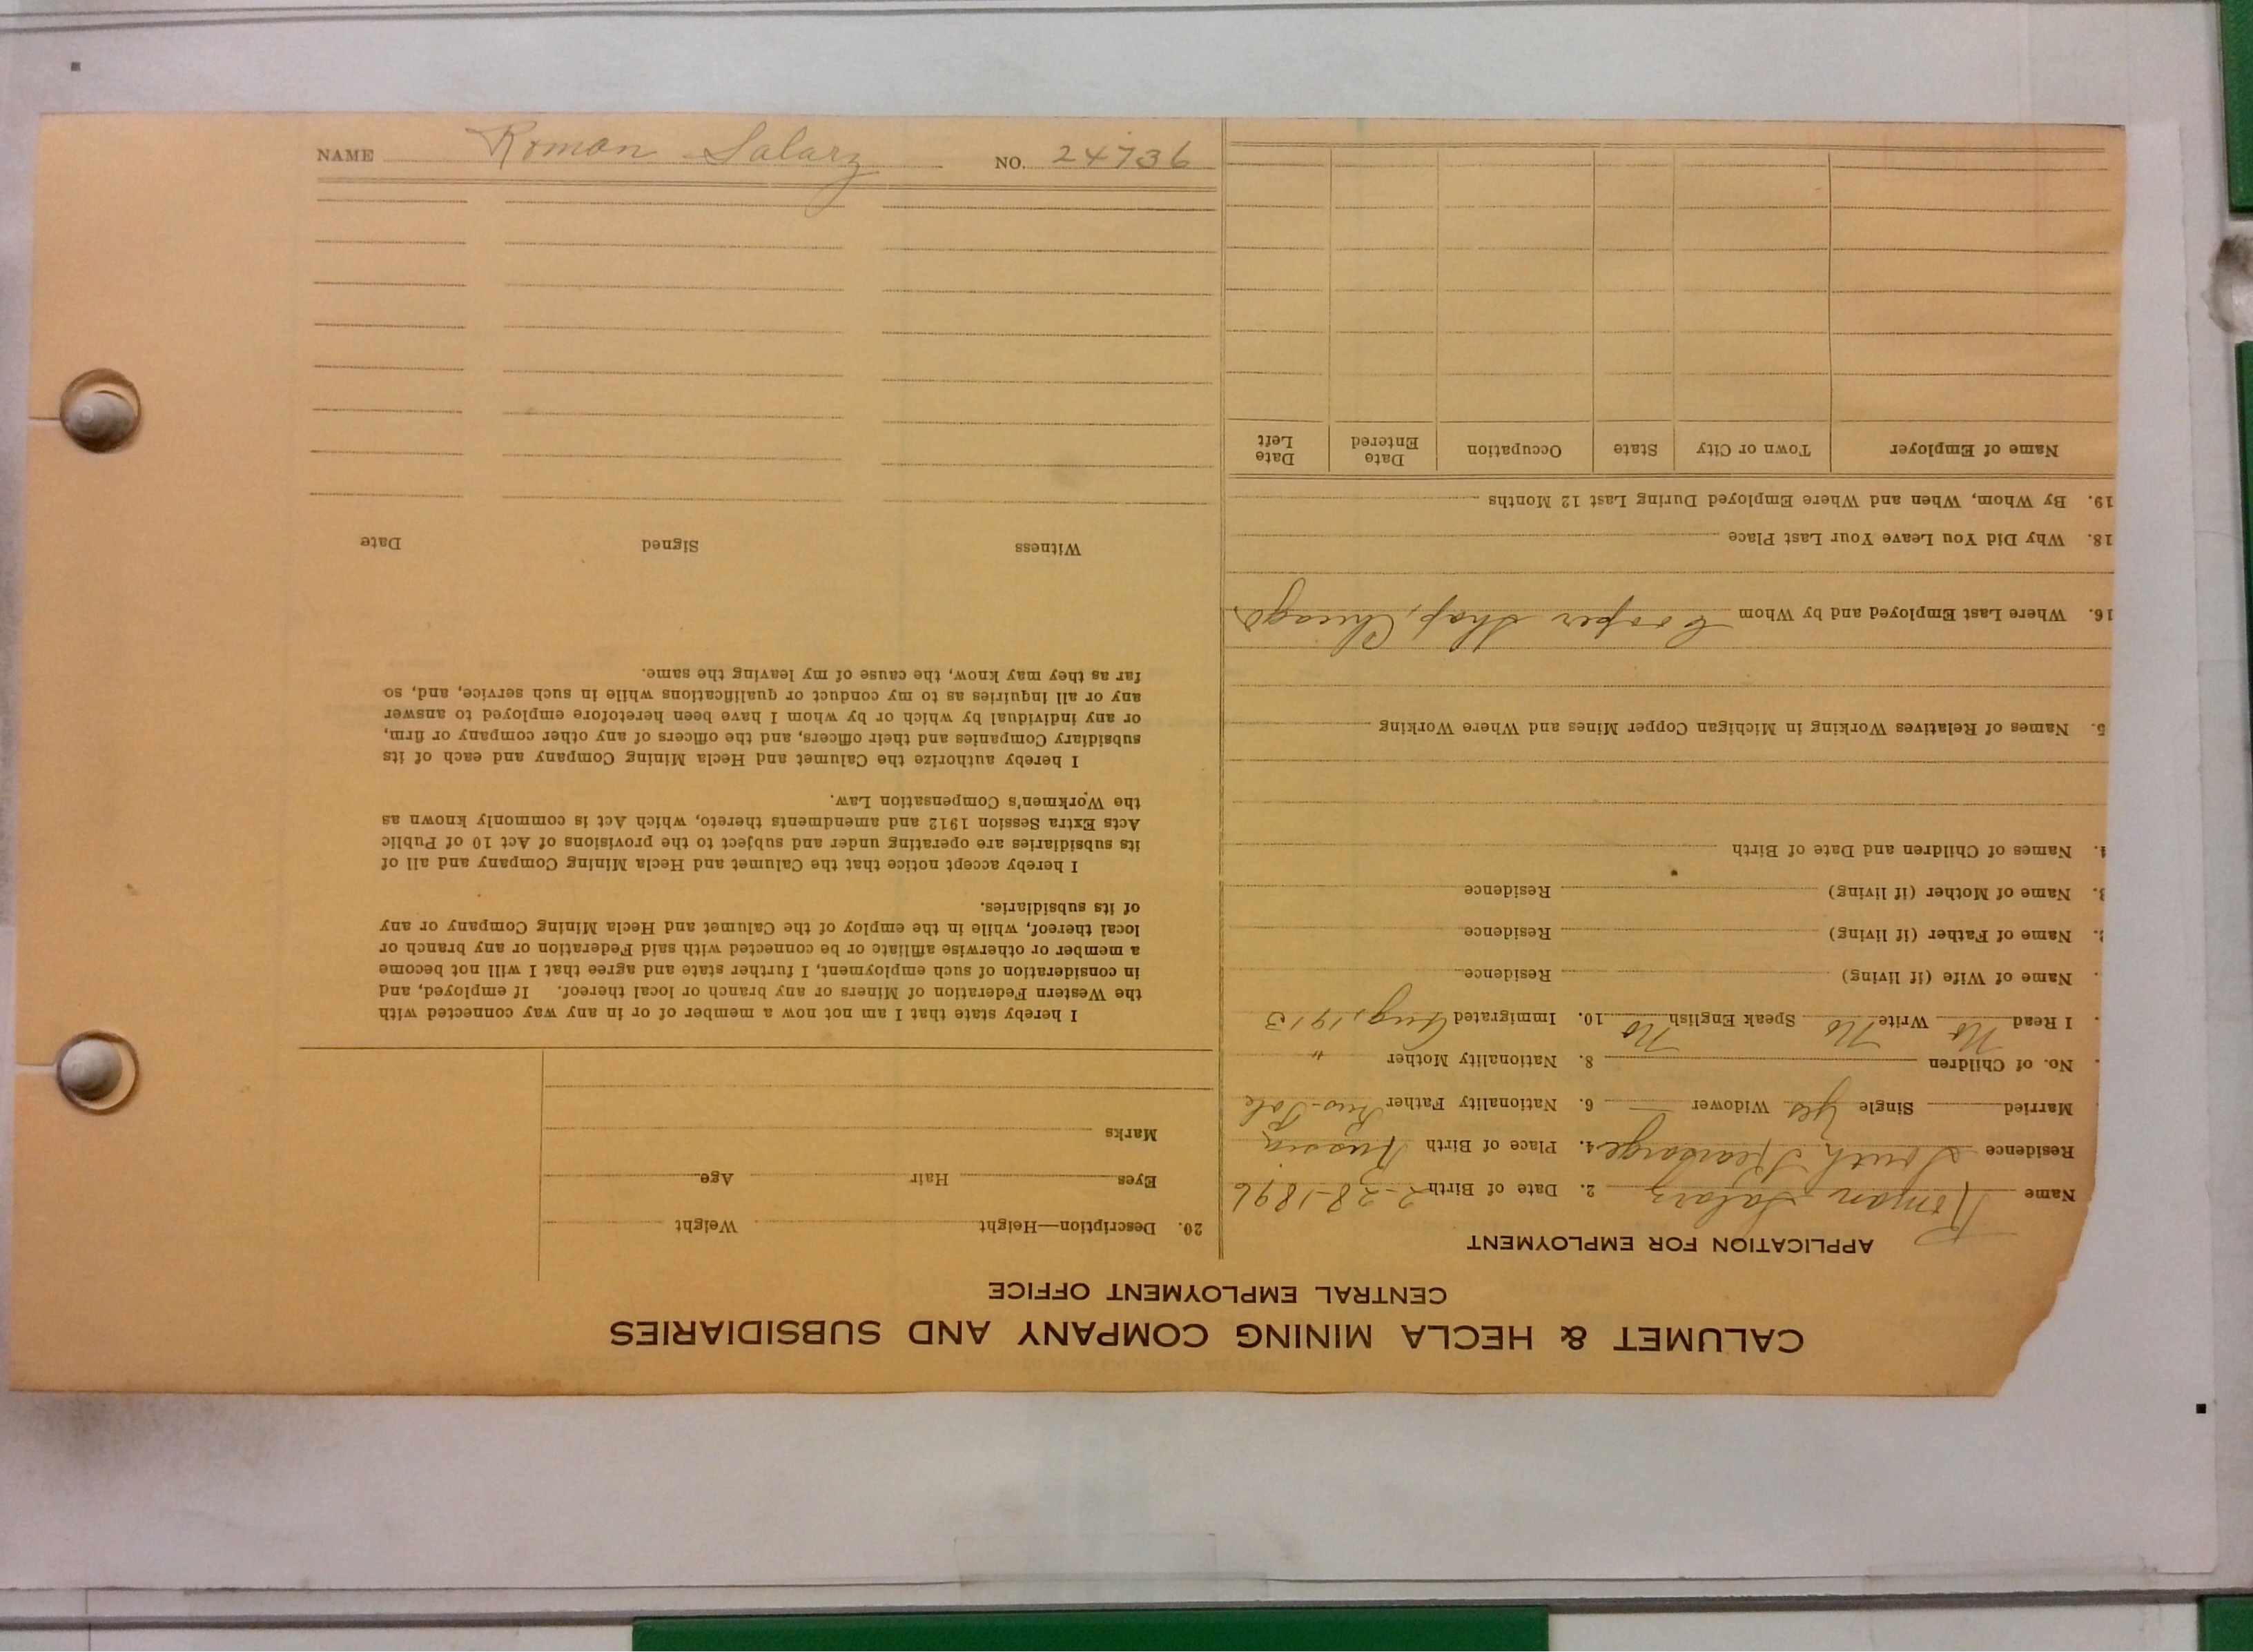 NAME Roman Salarz NO. 24736
CALUMET & HECLA MINING COMPANY AND SUBSIDIARIES
CENTRAL EMPLOYMENT OFFICE
APPLICATION FOR EMPLOYMENT
Name Roman Salarz 2. Date of Birth 2-28-1896
Residence South Kearsarge 4. Place of Birth Russia
Married Single Yes Widower 6. Nationality Father Rus-Pole
No. of Children 8. Nationality Mother "
I Read No Write No Speak English No 10. Immigrated Aug, 1913
Name of Wife (if living) Residence
2. Name of Father (if living) Residence
3. Name of Mother (if living) Residence
4. Names of Children and Date of Birth
5. Names of Relatives Working in Michigan Copper Mines and Where Working
16. Where Last Employed and by Whom Cooper Shop, Chicago
18. Why Did You Leave Your Last Place
19. By Whom, When and Where Employed During Last 12 Months
Name of Employer Town or City State Occupation Date Entered Date Left
20. Description—Height Weight
Eyes Hair Age
Marks
I hereby state that I am not now a member of or in any way connected with
the Western Federation of Miners or any branch or local thereof. If employed, and
in consideration of such employment, I further state and agree that I will not become
a member or otherwise affiliate or be connected with said Federation or any branch or
local thereof, while in the employ of the Calumet and Hecla Mining Company or any
of its subsidiaries.
I hereby accept notice that the Calumet and Hecla Mining Company and all of
its subsidiaries are operating under and subject to the provisions of Act 10 of Public
Acts Extra Session 1912 and amendments thereto, which Act is commonly known as
the Workmen's Compensation Law.
I hereby authorize the Calumet and Hecla Mining Company and each of its
subsidiary Companies and their officers, and the officers of any other company or firm,
or any individual by which or by whom I have been heretofore employed to answer
any or all inquiries as to my conduct or qualifications while in such service, and, so
far as they may know, the cause of my leaving the same.
Witness Signed Date